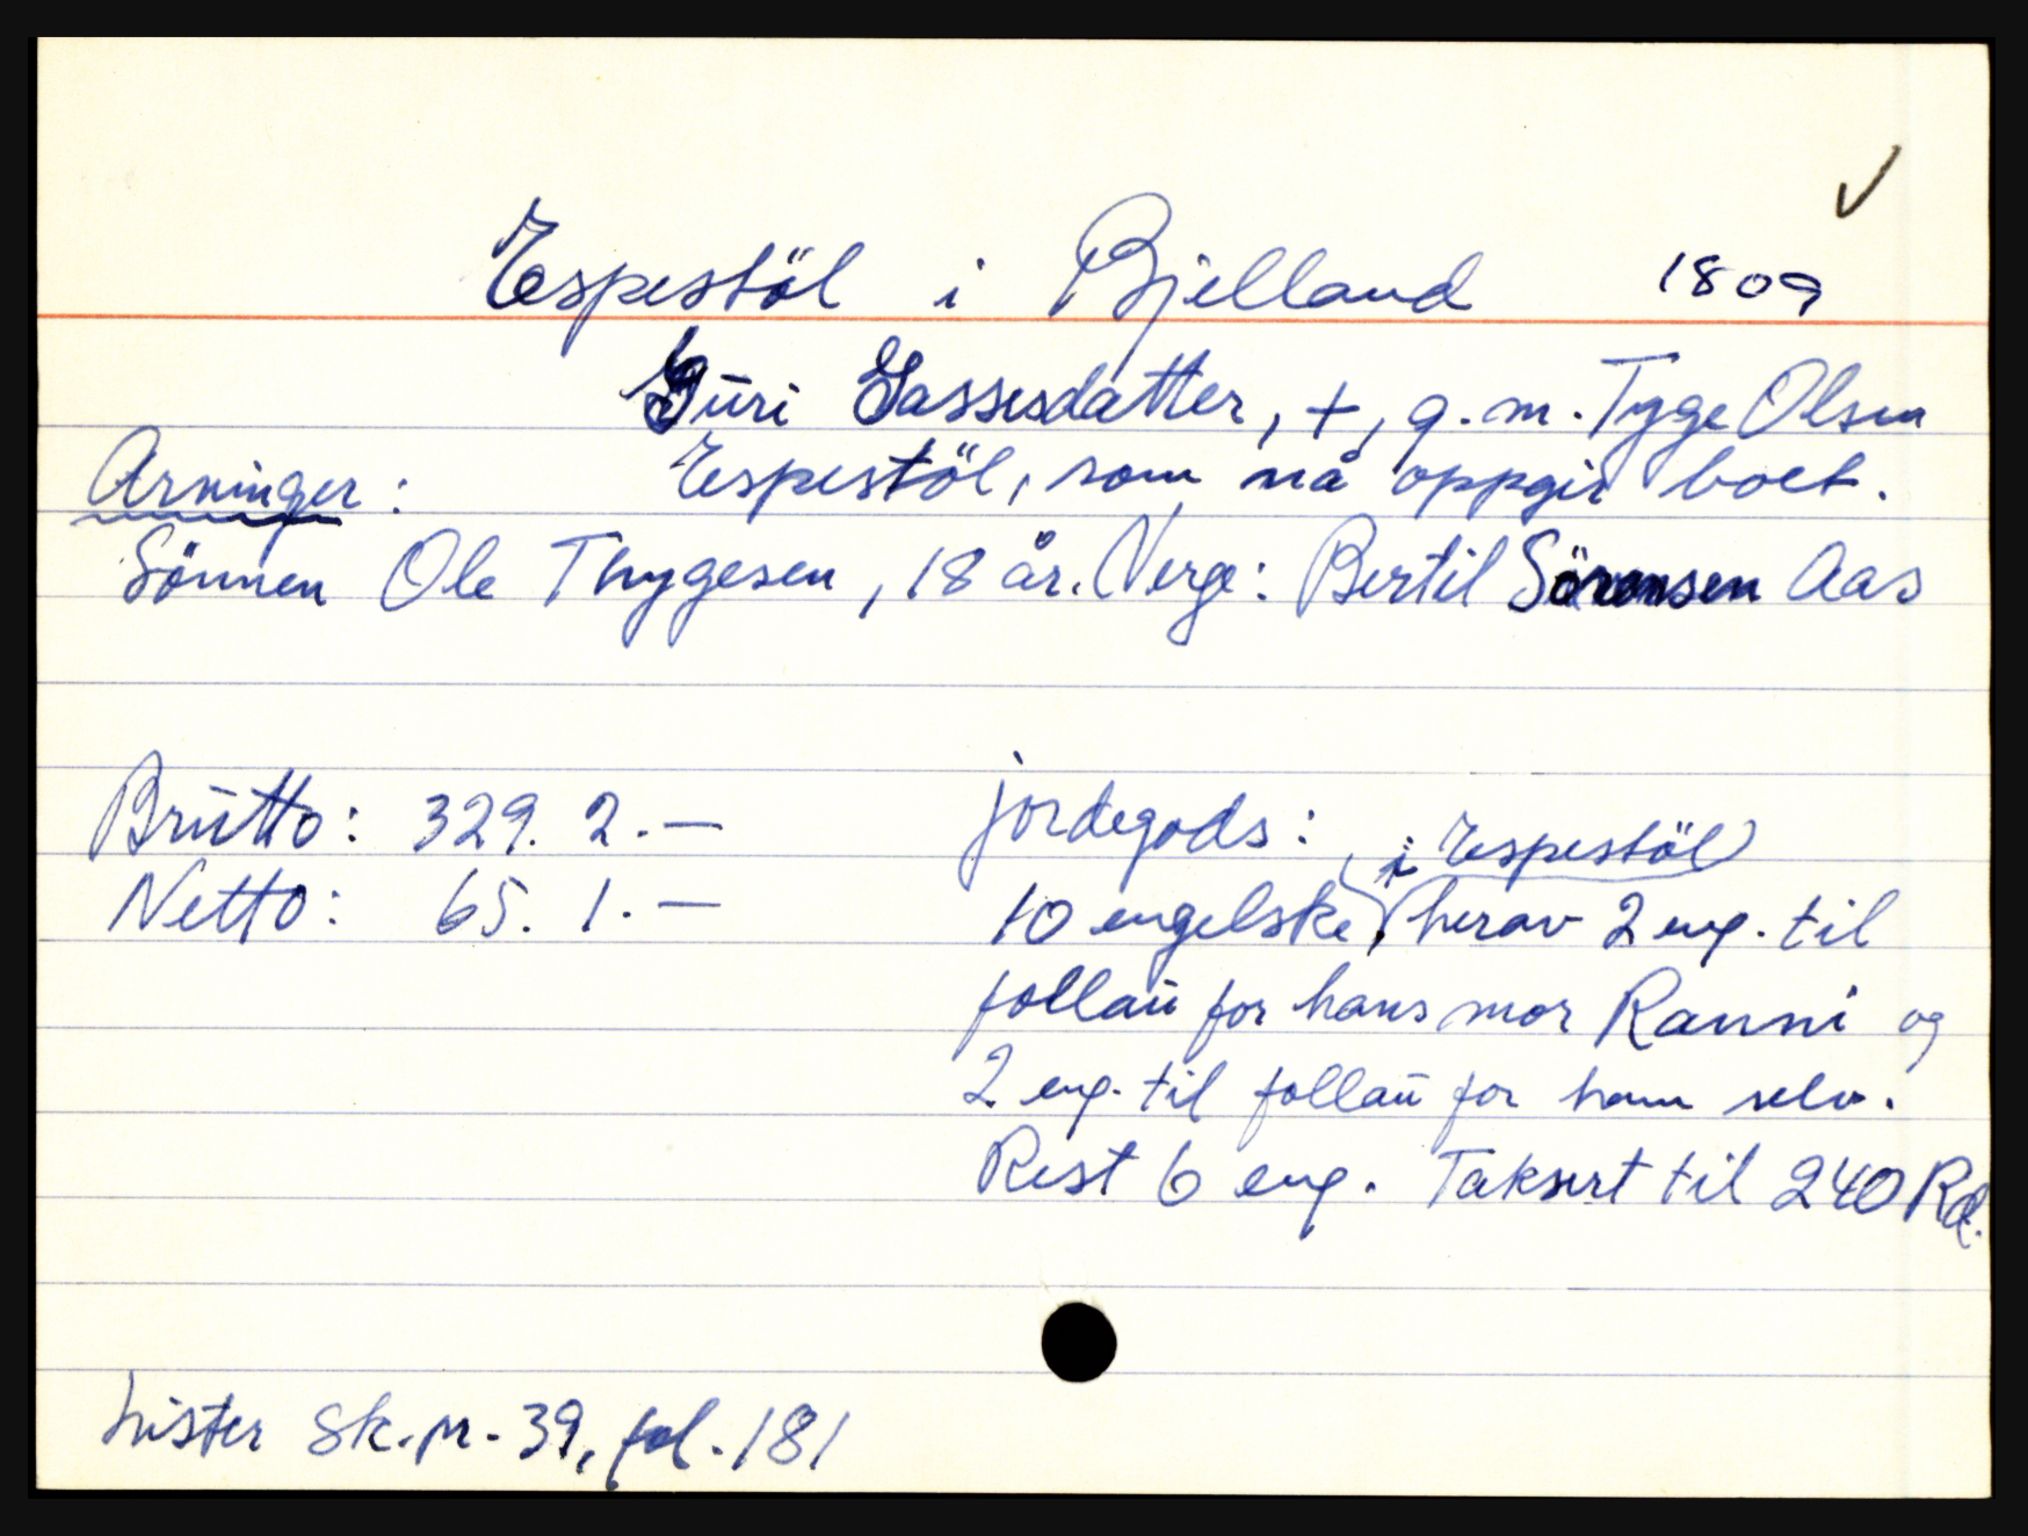 ✓
Espestöl i Bjelland 1809
Guri Sassesdatter, +, g. m. Tyge Olsen
Espestöl, som nå oppgir boet.
Arvinger:
Sönnen Ole Thygesen, 18 år. Verge: Bertil Sörensen Aas
Brutto: 329. 2. —
Netto: 65. 1. —
jordegods:
10 engelske i Espestöl, herav 2 eng. til
follau for hans mor Ranni og
2 eng. til follau for ham selv.
Rest 6 eng. Taksert til 240 Rd.
Lister sk.pr. 39, fol. 181